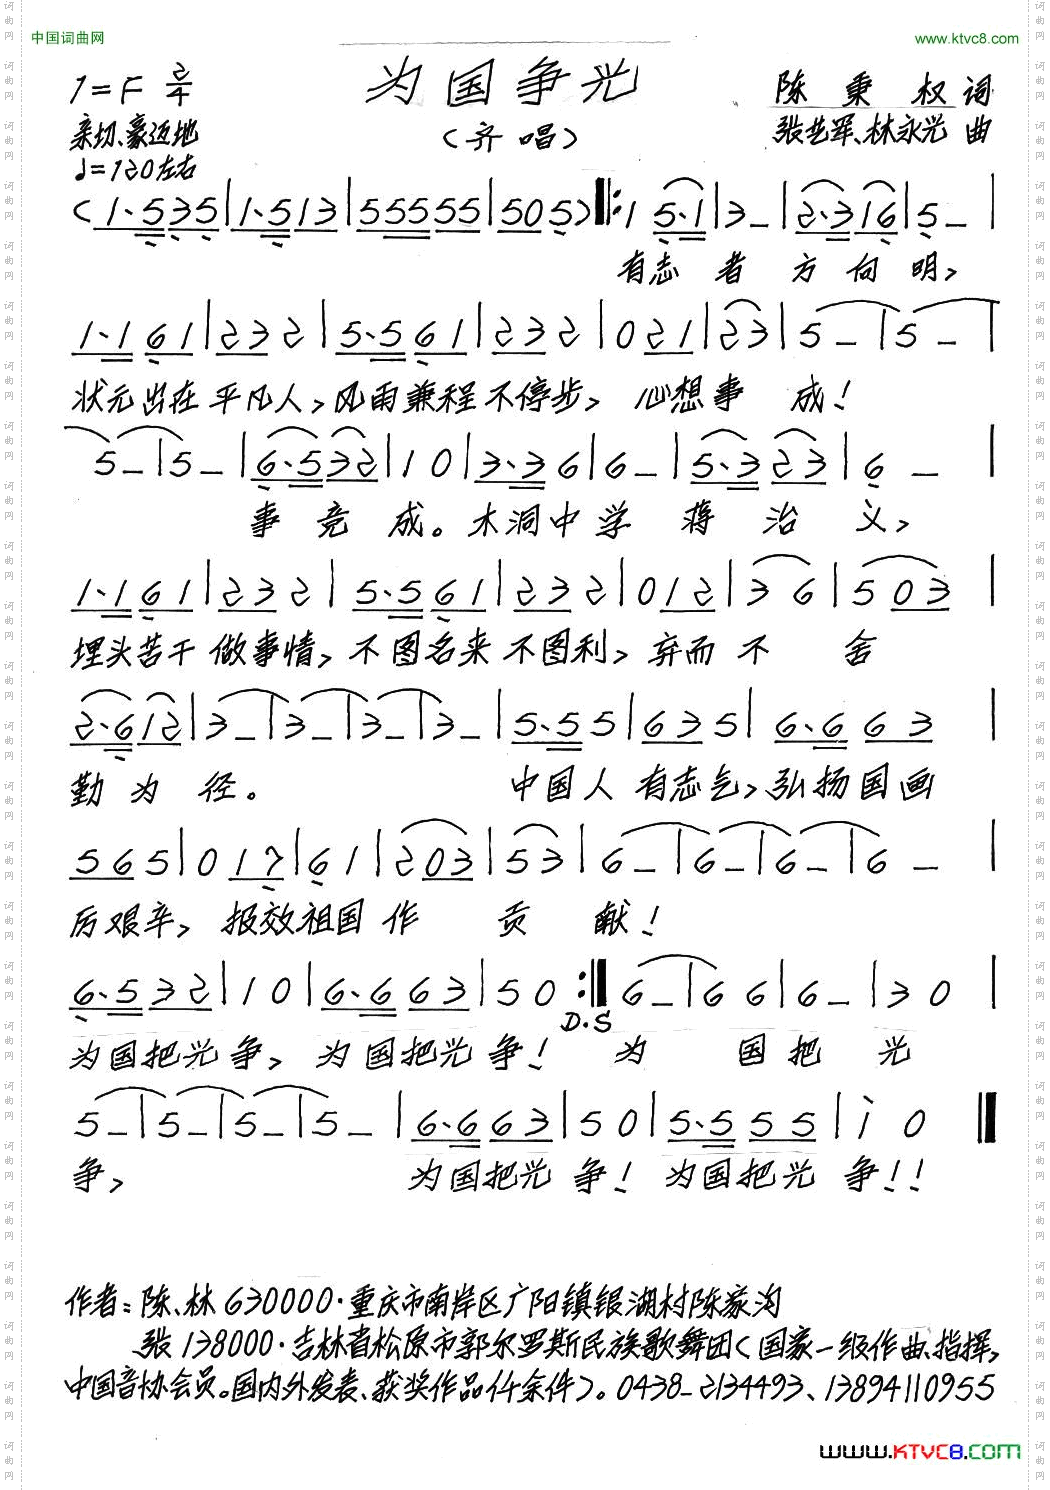 中国词曲网
www.ktvc8.com
为国争光
1=F 2/4
陈秉权 词
亲切、豪迈地
(齐唱)
张艺军、林永光 曲
♩=120左右
(1·535|1·513|55555|505)‖:1 5·1|3–|2·316|5–|
有志者方向明,
1·161|232|5·561|232|021|23|5–|5–|
状元出在平凡人,风雨兼程不停步,心想事成!
5–|5–|6·532|10|3·36|6–|5·323|6–|
事竞成。木洞中学蒋治义,
1·161|232|5·561|232|012|36|503|
埋头苦干做事情,不图名来不图利,弃而不舍
2·612|3–|3–|3–|3–|5·55|635|6·663|
勤为径。中国人有志气,弘扬国画
565|017|61|203|53|6–|6–|6–|6–|
厉艰辛,报效祖国作贡献!
6·532|10|6·663|50:‖6–|66|6–|30|
D.S
为国把光争,为国把光争!为国把光
5–|5–|5–|5–|6·663|50|5·555|i0‖
争,为国把光争!为国把光争!!
作者:陈、林 630000·重庆市南岸区广阳镇银湖村陈家沟
张 138000·吉林省松原市郭尔罗斯民族歌舞团(国家一级作曲、指挥,
中国音协会员。国内外发表、获奖作品仟余件)。0438–2134493、13894110955
www.KTVC8.com
词曲网